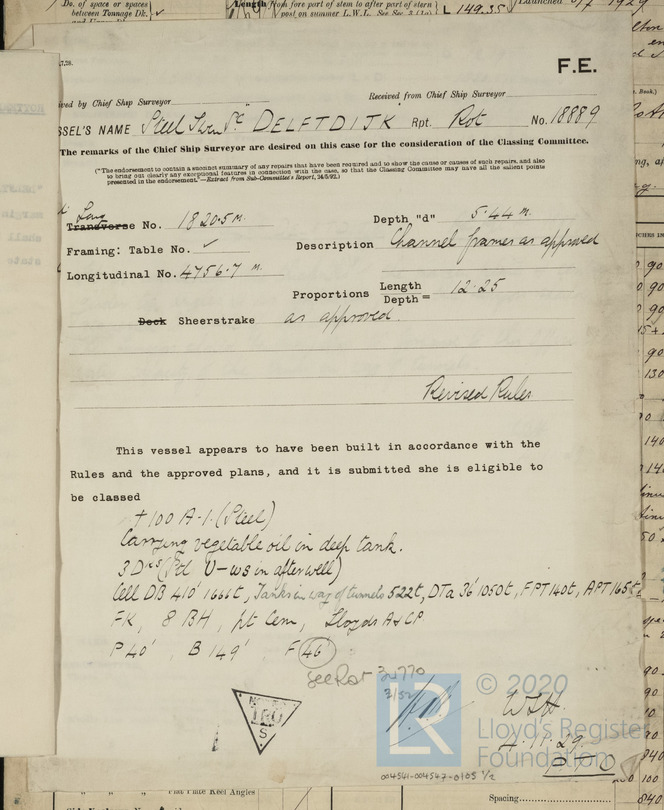 Do. of space or spaces
between Tonnage Dk.
Length from fore part of stem to after part of stern
post on summer L.W.L. See Sec. 3 (1a)
L 149.35
Launched
F.E.
Received from Chief Ship Surveyor
ived by Chief Ship Surveyor
SSEL'S NAME Steel DELFTDIJK Rpt. Rot No. 18889
The remarks of the Chief Ship Surveyor are desired on this case for the consideration of the Classing Committee.
("The endorsement to contain a succinct summary of any repairs that have been required and to show the cause or causes of such repairs, and also
to bring out clearly any exceptional features in connection with the case, so that the Classing Committee may have all the salient points
presented in the endorsement."—Extract from Sub-Committee's Report, 24/5/92.)
Long
Transverse No. 1820.5 m. Depth "d" 5.44 m.
Framing: Table No. ✓ Description Channel frames as approved
Longitudinal No. 4756.7 m.
Proportions Length
Depth = 12.25
Deck Sheerstrake as approved.
Revised Rules
This vessel appears to have been built in accordance with the
Rules and the approved plans, and it is submitted she is eligible to
be classed
+100 A-1. (Steel)
Carrying vegetable oil in deep tank.
3 Dks (Ptl U-ws in after well)
Cell DB 410' 1666t, Tanks in way of tunnels 522t, DTa 36' 1050t, FPT 140t, APT 165t
FK, 8 BH, pt Cem, Lloyds A&CP
P 40', B 149', F 46'
See Rot 32770
3/52
© 2020
LR
Lloyd's Register
Foundation
4.11.29
004541-004547-0105 1/2
Flat Plate Keel Angles
Spacing